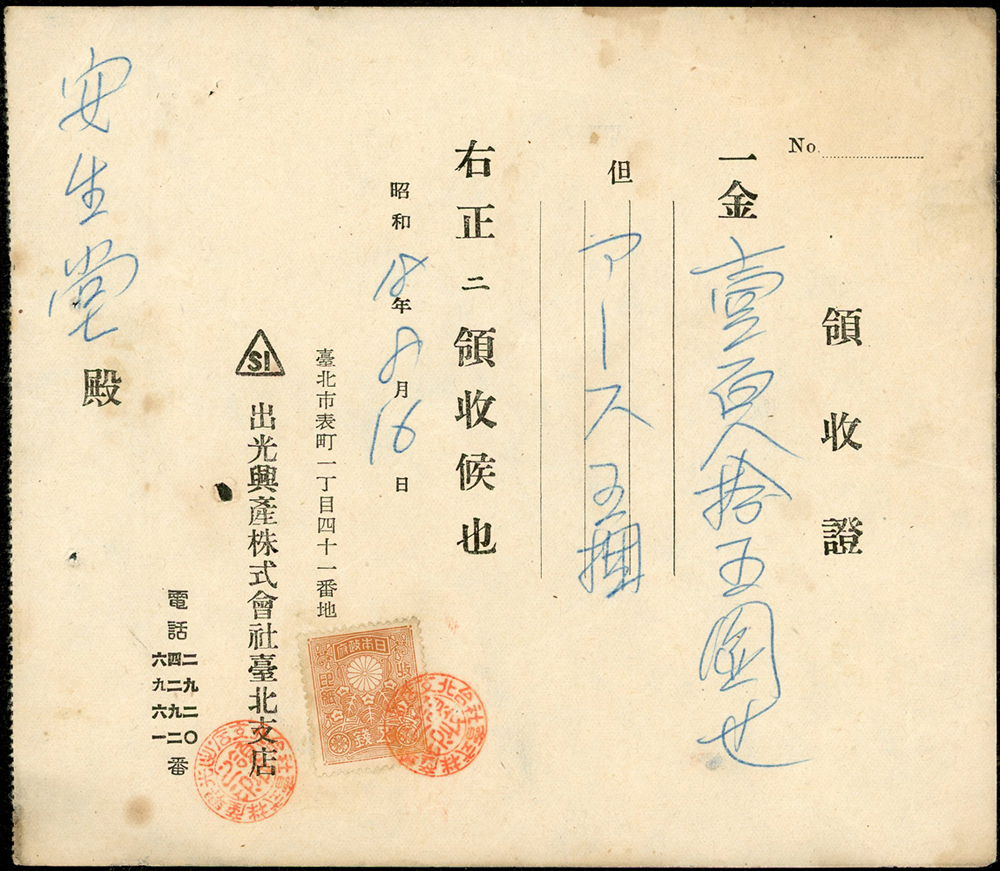 No.
領收證
一金 壹百拾五圓也
但 アース五梱
右正ニ領收候也
昭和18年8月16日
臺北市表町一丁目四十一番地
SI
出光興產株式會社臺北支店
電話
二九二〇
四二九二
六九六一
番
安生堂殿
日本政府
收入印紙
錢